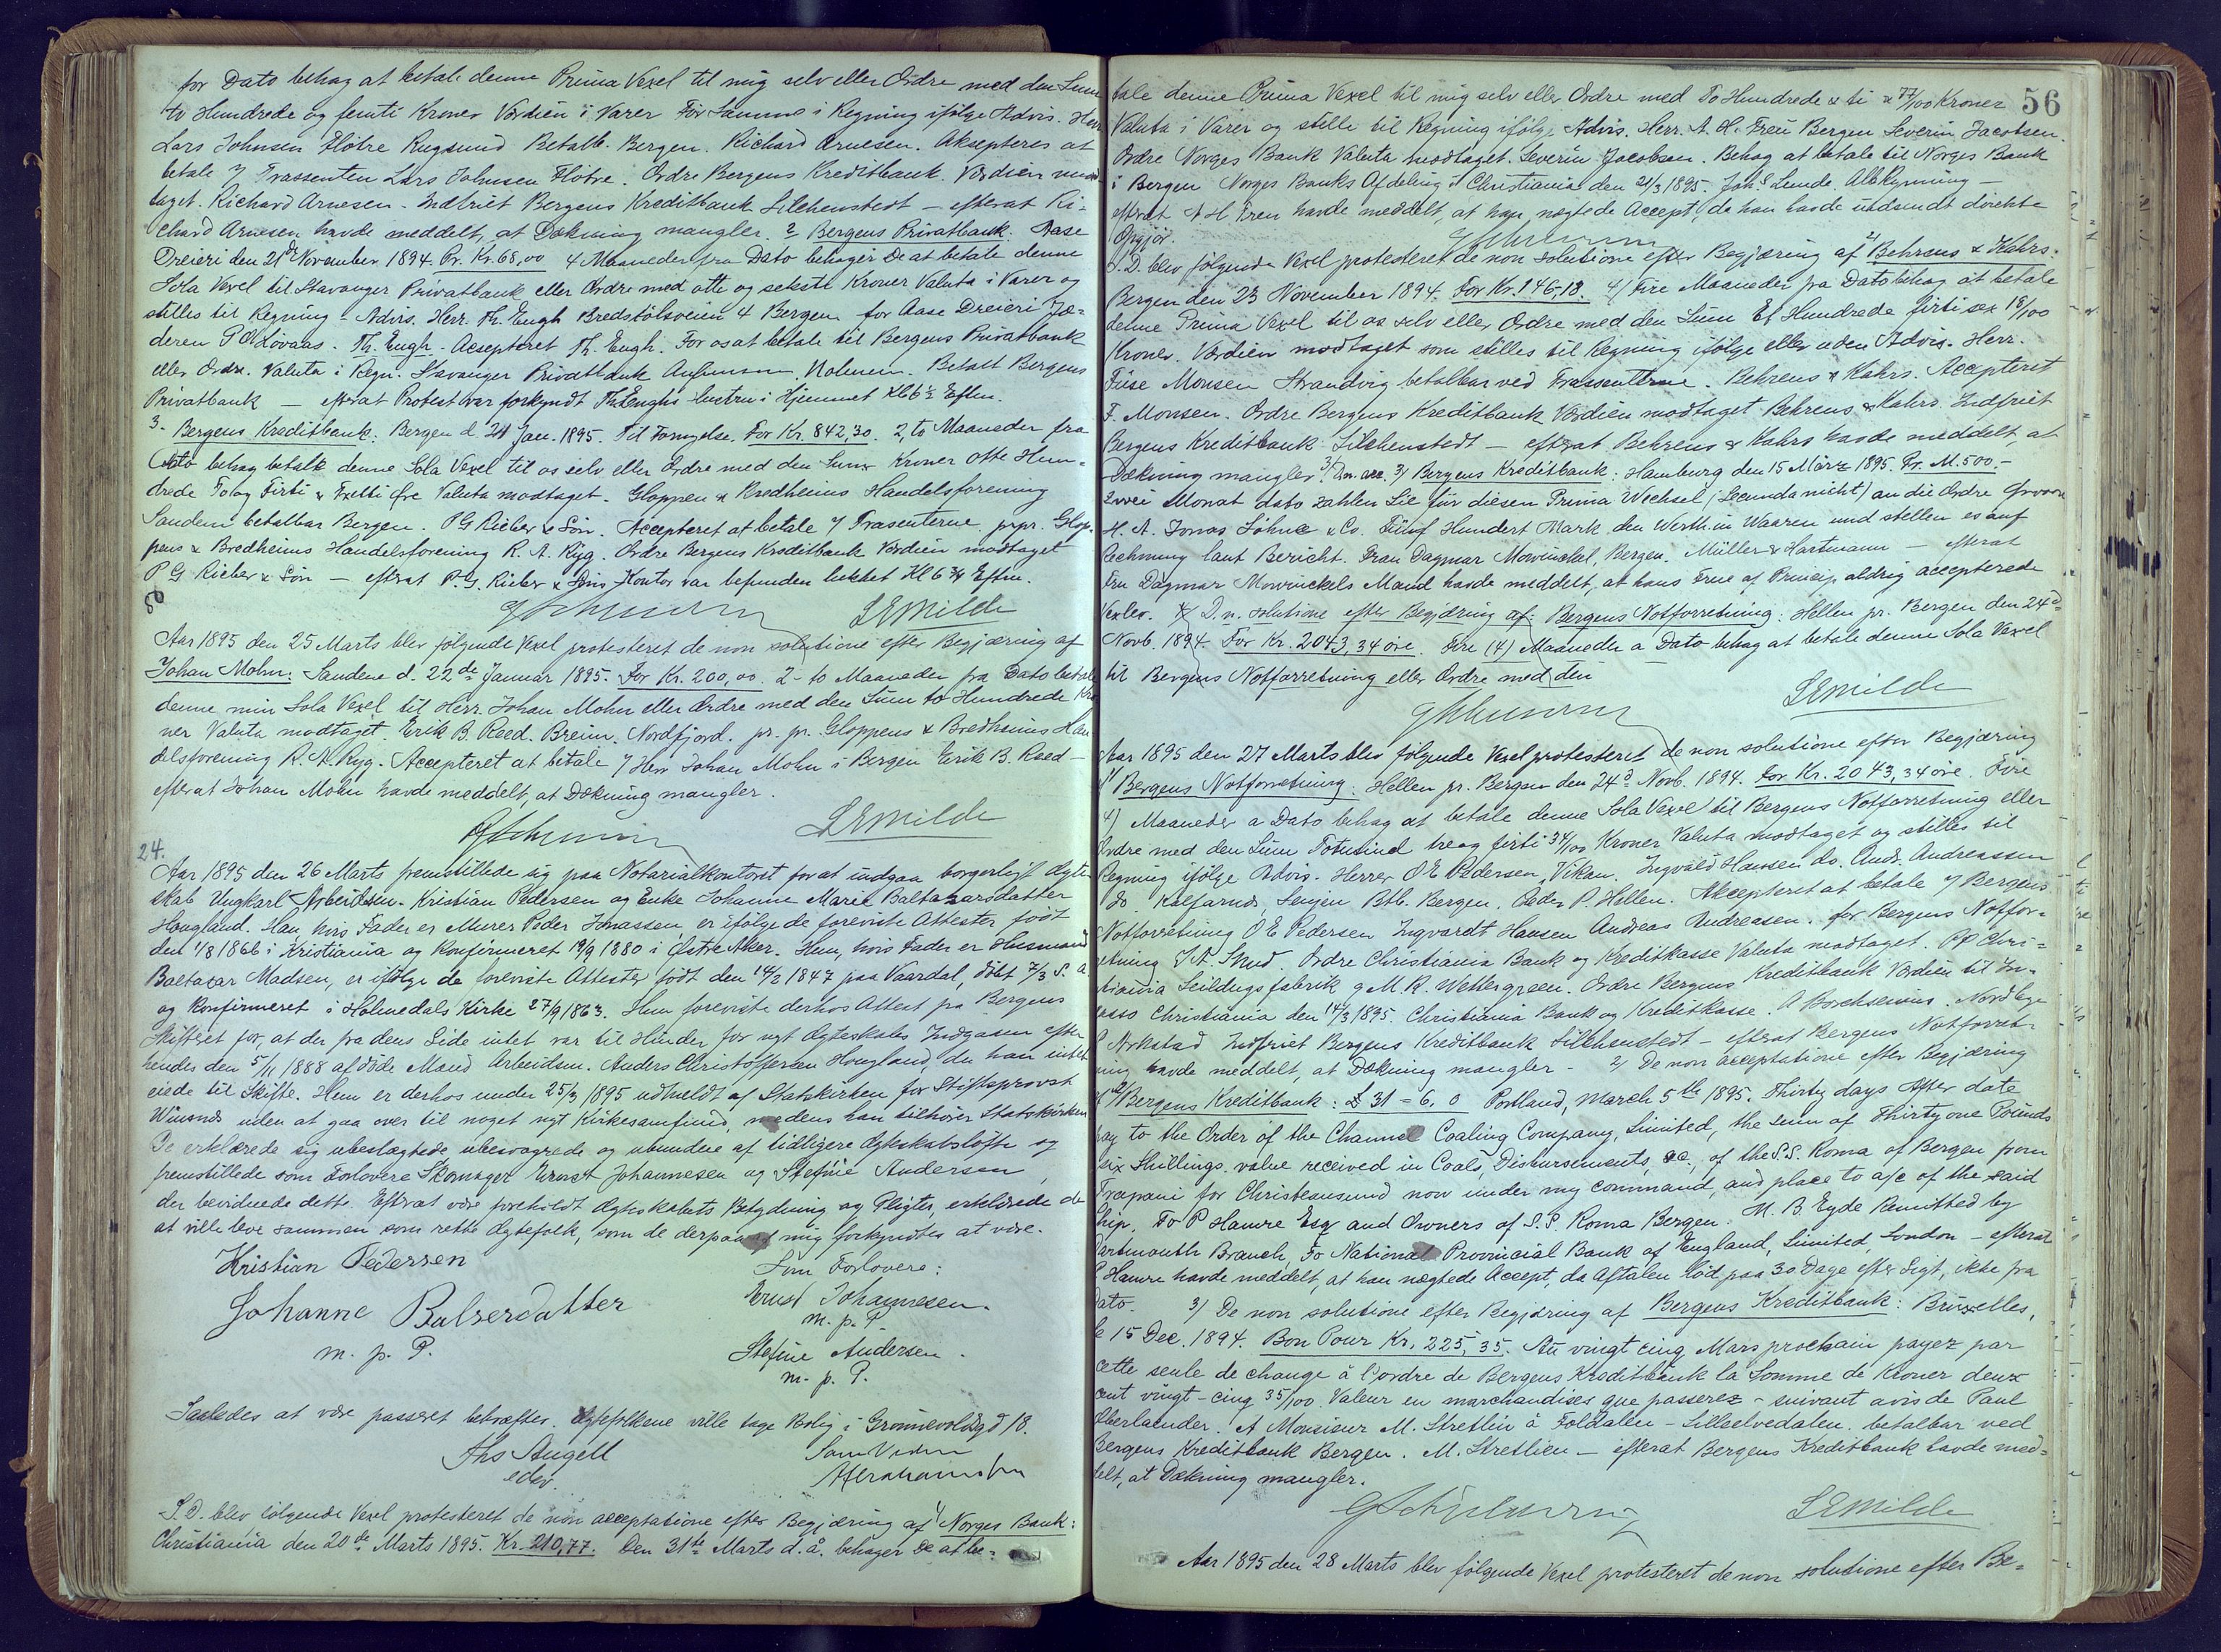 for Dato behag at betale denne Prima Vexel til mig selv eller Ordre med den Sum
to Hundrede og femti Kroner Værdien i Varer Før Samme i Regning ifølge Advis. Herr
Lars Johnsen Flötre Rugsund Betalb. Bergen. Richard Arnesen. Aksepteres at
betale  Trassenten Lars Johnsen Flötre. Ordre Bergens Kreditbank. Værdien mod-
taget. Richard Arnesen. Indfriet Bergens Kreditbank Silchenstedt — efterat Ri-
chard Arnesen havde meddelt, at Dækning mangler. 2 Bergens Privatbank. Aase
Dreieri den 21de November 1894. Pr. Kr. 68,00 4 Maaneder fra Dato behager De at betale denne
Sola Vexel til Stavanger Privatbank eller Ordre med otte og seksti Kroner Valuta i Varer og
stilles til Regning - Advis. Herr. Th. Engh Bredstölsveien 4 Bergen for Aase Dreieri Jæ-
deren P Lövaas. Th. Engh. Accepteret Th. Engh. For os at betale til Bergens Privatbank
eller Ordre. Valuta i Regn. Stavanger Privatbank Betalt Bergens
Privatbank — efterat Protest var forkyndt Th. Enghs Hustru i Hjemmet Kl 6½ Eftm.
3. Bergens Kreditbank: Bergen d. 24 Jan. 1895. Til Fornyelse. For Kr. 842,30. 2, to Maaneder fra
Dato behag betale denne Sola Vexel til os selv eller Ordre med den Sum Kroner otte Hun-
drede To og Firti & Tretti Öre Valuta modtaget. Gloppen & Bredheims Handelsforening
Sandene betalbar Bergen. P G Rieber & Sön. Accepteret at betale  Trasenterne. prpr. Glop-
pens & Bredheims Handelsforening R. N. Ryg. Ordre Bergens Kreditbank Værdien modtaget
P G Rieber & Sön — efterat P. G. Rieber & Söns Kontor var befunden lukket Kl 6¾ Eftm.
SEMilde
Aar 1895 den 25 Marts blev følgende Vexel protesteret de non solutione efter Begjæring af
Johan Mohn: Sandene d. 22de Januar 1895. For Kr. 200,00. 2 - to Maaneder fra Dato betale
denne min Sola Vexel til Herr. Johan Mohn eller Ordre med den Sum to Hundrede Kro
ner Valuta modtaget. Erik B. Reed. Breim. Nordfjord. pr. pr. Gloppens & Bredheims Han
delsforening R. N. Ryg. Accepteret at betale  Herr Johan Mohn i Bergen Erik B. Reed —
efterat Johan Mohn havde meddelt, at Dækning mangler.
SEMilde
24.
Aar 1895 den 26 Marts fremstillede sig paa Notarialkontoret for at indgaa borgerligt Ægte
skab Ungkarl Arbeidsm. Kristian Pedersen og Enke Johanne Marie Baltazarsdatter
Hougland. Han, hvis Fader er Murer Peder Jonassen, er ifølge de foreviste Attester født
den 4/8 1866 i Kristiania og Konfirmeret 19/9 1880 i Østre Aker. Hun, hvis Fader er Husmand
Baltazar Madsen, er ifølge de foreviste Attester født den 14/2 1847 paa Vaardal, döbt 7/3 S. A.
og Konfirmeret i Holmedals Kirke 27/9 1863. Hun foreviste derhos Attest fra Bergens
Skifteret for, at der fra dens Side intet var til Hinder for nyt Ægteskabs Indgaaen efter
hendes den 5/11 1888 afdöde Mand Arbeidsm. Anders Christoffersen Hougland, da han intet
eiede til Skifte. Hun er derhos under 25/3 1895 udmeldt af Statskirken for Stiftsprovst
uden at gaa over til noget nyt Kirkesamfund, medens han tilhører Statskirken
De erklærede sig ubeslægtede ubesvogrede og ubundne af tidligere Ægteskabsløfte og
fremstillede som Forlovere Skomager Ernst Johannesen og Stefine Andersen,
der bevidnede dette. Efterat være foreholdt Ægteskabets Betydning og Pligter, erklærede de
at ville leve sammen som rette Ægtefolk, som de derpaa af mig forkyndtes at være.
Kristian Pedersen
Som Forlovere:
Johanne Balserdatter
Ernst Johannesen.
m. p. P.
m. p. P.
Stefine Andersen.
m. p. P.
Saaledes at være passeret bekræftes. Ægtefolkene ville tage Bolig i Grönnevoldsgd 18.
Ths Angell
Som Vidne
edsv.
S. D. blev følgende Vexel protesteret de non acceptatione efter Begjæring af 1) Norges Bank:
Christiania den 20de Marts 1895. Kr. 210,77. Den 31te Marts d. å. behager De at be-
56
tale denne Prima Vexel til mig selv eller Ordre med To Hundrede & ti & 77/100 Kroner
Valuta i Varer og stille til Regning ifølge Advis. Herr. A. H. Freu Bergen Severin Jacobsen.
Ordre Norges Bank Valuta modtaget. Severin Jacobsen. Behag at betale til Norges Bank
i Bergen Norges Banks Afdeling i Christiania den 21/3 1895. Joh. S Lunde. Alb Kynning —
efterat A H Freu havde meddelt, at han nægtede Accept, da han havde indsendt direkte
Opgjör.
S. D. blev følgende Vexel protesteret de non solutione efter Begjæring af 2) Behrens & Kahrs:
Bergen den 23 November 1894. For Kr. 146,18. 4/ Fire Maaneder fra Dato behag at betale
denne Prima Vexel til os selv eller Ordre med den Sum Et Hundrede firti sex 18/100
Kroner. Værdien modtaget som stilles til Regning ifølge eller uden Advis. Herr.
Fuse Monsen Strandvig betalbar ved Trassenterne. Behrens & Kahrs. Accepteret
F. Monsen. Ordre Bergens Kreditbank Værdien modtaget Behrens & Kahrs. Indfriet
Bergens Kreditbank Silchenstedt — efterat Behrens & Kahrs havde meddelt, at
Dækning mangler. 3/ D. n. acc. 3/ Bergens Kreditbank: Hamburg den 15 März 1895. Pr. M. 500.-
Zwei Monat dato zahlen Sie für diesen Prima Wechsel (Secunda nicht) an die Ordre
H. A. Jonas Söhne & Co. Fünf Hundert Mark den Werth in Waaren und stellen es auf
Rechnung laut Bericht. Frau Dagmar Mowinckel, Bergen. Müller & Hartmann — efterat
Fru Dagmar Mowinckels Mand havde meddelt, at hans Frue af Princip aldrig accepterede
Vexler. D. n. solutione efter Begjæring af: Bergens Notforretning: Hellen pr. Bergen den 24d
Novb. 1894. For Kr. 2043,34 øre. Fire (4) Maaneder a Dato behag at betale denne Sola Vexel
til Bergens Notforretning eller Ordre med den
SEMilde
Aar 1895 den 27 Marts blev følgende Vexel protesteret de non solutione efter Begjæring
Bergens Notforretning: Hellen pr. Bergen den 24d Novb. 1894. For Kr. 2043,34 øre. Fire
4) Maaneder a Dato behag at betale denne Sola Vexel til Bergens Notforretning eller
Ordre med den Sum Totusind tre og firti 34/100 Kroner Valuta modtaget og stilles til
Regning ifølge Advis. Herrer O E Pedersen, Vikan. Ingvald Hansen do. Andr. Andreassen
do. Kalfarnes, Senjen Btb. Bergen. Peder P. Hellen. Akcepteret at betale  Bergens
Notforretning O E Pedersen Ingvardt Hansen Andreas Andreasen. for Bergens Notfor-
retning Ordre Christiania Bank og Kreditkasse Valuta modtaget. PP Chri-
stiania Seildugsfabrik M. R. Wettergreen. Ordre Bergens Kreditbank Værdien til In-
casso Christiania den 14/3 1895. Christiania Bank og Kreditkasse. A Borchsenius. Nordbye
Arkstad Indfriet Bergens Kreditbank Silchenstedt — efterat Bergens Notforret-
ning havde meddelt, at Dækning mangler - 2) De non acceptatione efter Begjæring
af Bergens Kreditbank: £ 31 = 6. 0 Portland, March 5th 1895. Thirty days after date
pay to the Order of the Channel Coaling Company, Limited, the sum of Thirty one Pounds
six Shillings. value received in Coals, Disbursements, &c, of the S.S. Roma of Bergen from
Trapani for Christeansund now under my command, and place to a/c of the said
Ship. To P Hamre Esq and Owners of S. S Roma Bergen. M. B. Eyde Remitted by
Dartmouth Branch, To National Provincial Bank of England, Limited, London — efterat
P Hamre havde meddelt, at han nægtede Accept, da Aftalen löd paa 30 Dage efter Sigt, ikke fra
Dato. 3/ De non solutione efter Begjæring af Bergens Kreditbank: Bruxelles,
le 15 Dec. 1894. Bon Pour Kr. 225,35. Au vingt cinq Mars prochain payez par
cette seule de change à l'ordre de Bergens Kreditbank la Somme de Kroner deux
cent vingt-cinq 35/100 Valeur en marchandises que passerez - suivant avis de Paul
Oberlaender. A Monsieur M. Stretlin à Foldalen - Lilleelvedalen. betalbar ved
Bergens Kreditbank Bergen. M. Stretlien — efterat Bergens Kreditbank havde med-
delt, at Dækning mangler.
SEMilde
Aar 1895 den 28 Marts blev følgende Vexel protesteret de non solutione efter Be-